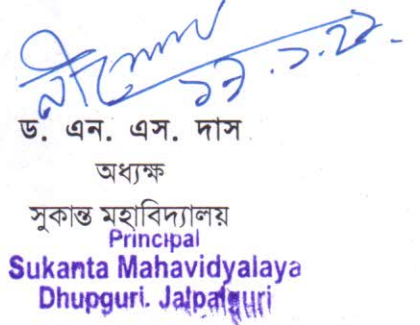 ড. এন. এস. দাস
অধ্যক্ষ
সুকান্ত মহাবিদ্যালয়
Principal
Sukanta Mahavidyalaya
Dhupguri. Jalpaiguri